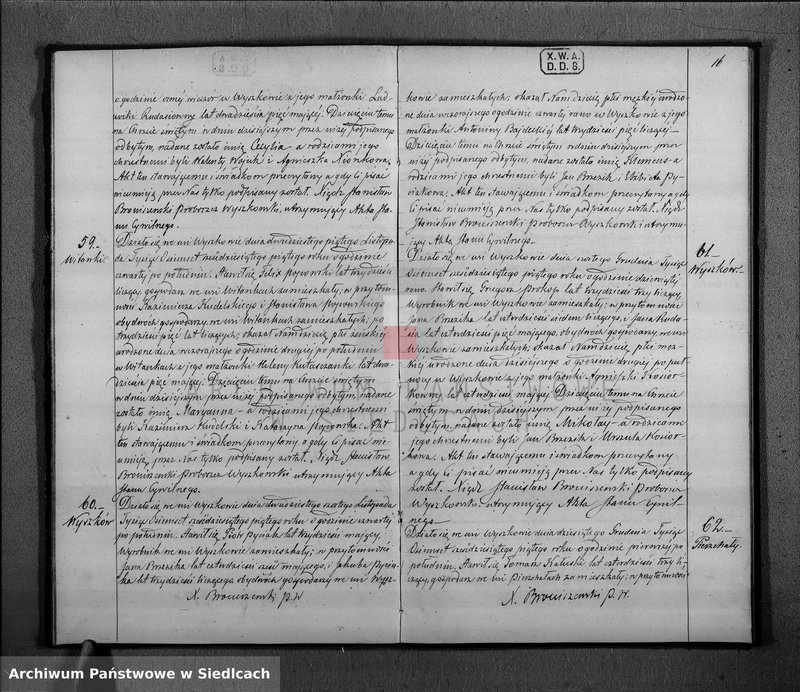 X.W.A.
D.D.S.
16
ogodzinie ósmej wieczór w Wyszkowie z jego małżonki Lud-
wiki lat dwadzieścia pięć mającej. Dziecięciu temu
na Chrzcie świętym w dniu dzisiejszym przez niżej podpisanego
odbytym, nadane zostało imię Cecylia a rodzicami jego
chrzestnemi byli Walenty Wójcik i Agnieszka
Akt ten stawającemu i świadkom przeczytany a gdy Ci pisać
nieumieją przez Nas tylko podpisany został. Xiądz Stanisław
Brociszewski Proboszcz Wyszkowski, utrzymujący Akta Sta-
nu Cywilnego.
59.
Witanki
Działo się we wsi Wyszkowie dnia dwudziestego piątego Listopa-
da Tysiąc Ośmset sześćdziesiątego piątego roku o godzinie
czwartej po południu. Stawił się Felix Popowski lat trzydzieści
liczący, gospodarz we wsi Witankach zamieszkały, w przytom-
ności Kazimierza Kudelskiego i Stanisława Popowskiego
obydwóch gospodarzy we wsi Witankach zamieszkałych, po
trzydzieści pięć lat liczących, okazał Nam dziecię płci żeńskiej
urodzone dnia wczorajszego o godzinie drugiej po południu
w Witankach z jego małżonki Heleny lat dwa-
dzieścia pięć mającej. Dziecięciu temu na Chrzcie świętym
w dniu dzisiejszym przez niżej podpisanego odbytym, nadane
zostało imię Maryanna a rodzicami jego chrzestnemi
byli Kazimierz Kudelski i Katarzyna Popowska. Akt
ten stawającemu i świadkom przeczytany a gdy Ci pisać nie
umieją, przez Nas tylko podpisany został. Xiądz Stanisław
Brociszewski Proboszcz Wyszkowski utrzymujący Akta
Stanu Cywilnego.
60.
Wyszków
Działo się we wsi Wyszkowie dnia dwudziestego szóstego Listopada
Tysiąc Ośmset sześćdziesiątego piątego roku o godzinie czwartej
po południu. Stawił się Piotr lat trzydzieści mający,
Wyrobnik we wsi Wyszkowie zamieszkały, w przytomności
Jana Brzezika lat czterdzieści sześć mającego, i Jakuba
lat trzydzieści liczącego obydwóch gospodarzy we wsi Wysz-
X. Brociszewski P. W.
kowie zamieszkałych, okazał Nam dziecię płci męzkiej urodzo-
ne dnia wczorajszego o godzinie czwartej rano w Wyszkowie z jego
małżonki Antoniny lat trzydzieści pięć liczącej.
Dziecięciu temu na Chrzcie świętym w dniu dzisiejszym przez
niżej podpisanego odbytym, nadane zostało imię Klemens a
rodzicami jego chrzestnemi byli Jan Brzezik i Elżbieta
Akt ten stawającemu i świadkom przeczytany a gdy
Ci pisać nieumieją przez Nas tylko podpisany został. Xiądz
Stanisław Brociszewski Proboszcz Wyszkowski utrzymu-
jący Akta Stanu Cywilnego.
61.
Wyszków
Działo się we wsi Wyszkowie dnia szóstego Grudnia Tysiąc
Ośmset sześćdziesiątego piątego roku o godzinie dziewiątej
rano. Stawił się Grzegorz Prokop lat trzydzieści trzy liczący,
Wyrobnik we wsi Wyszkowie zamieszkały, w przytomności
Jana Brzezika lat czterdzieści siedem liczącego, i Jana
lat czterdzieści pięć mającego, obydwóch gospodarzy we wsi
Wyszkowie zamieszkałych, okazał Nam dziecię płci męz-
kiej urodzone dnia dzisiejszego o godzinie drugiej po pół-
nocy w Wyszkowie z jego małżonki Agnieszki
lat czterdzieści mającej. Dziecięciu temu na Chrzcie
świętym w dniu dzisiejszym przez niżej podpisanego
odbytym, nadane zostało imię Mikołaj a rodzicami
jego chrzestnemi byli Jan Brzezik i Urszula
Akt ten stawającemu i świadkom przeczytany
a gdy Ci pisać nieumieją przez Nas tylko podpisany
został. Xiądz Stanisław Brociszewski Proboszcz
Wyszkowski utrzymujący Akta Stanu Cywil-
nego.
62.
Pierzchały
Działo się we wsi Wyszkowie dnia dziesiątego Grudnia Tysiąc
Ośmset sześćdziesiątego piątego roku o godzinie pierwszej po
południu. Stawił się Tomasz Kaliński lat czterdzieści trzy li-
czący, gospodarz we wsi Pierzchałach zamieszkały, w przytomności
X. Brociszewski P. W.
Archiwum Państwowe w Siedlcach